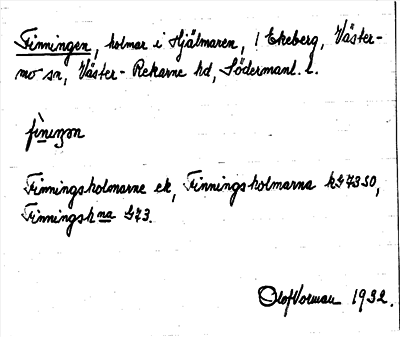 Finningen, holmar i Hjälmaren, / Ekeberg, Väster-
mo sn, Väster-Rekarne hd, Södermanl. l.
fìniŋən
Finningsholmarne ek, Finningsholmarna k
Finningshna G73.
Olof Vorman 1932.